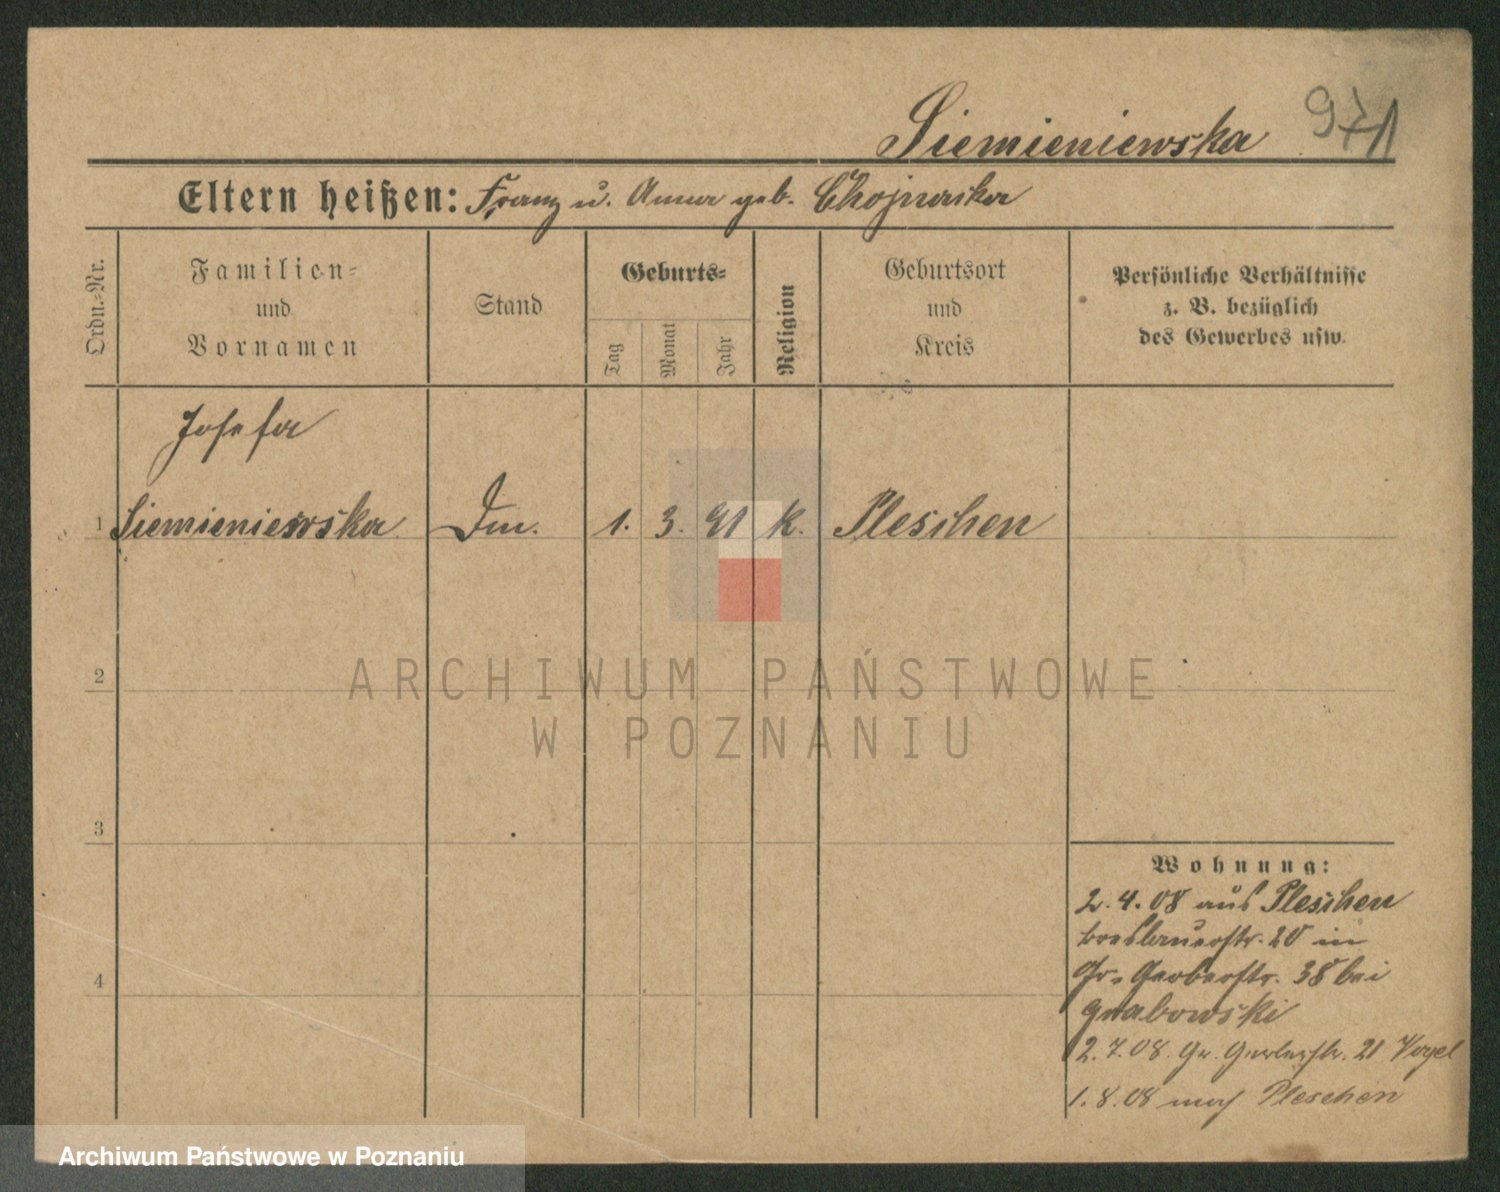 Siemieniewska 971
Eltern heißen: Franz u. Anna geb. Chojnaska
Ordn.-Nr.
Familien-
und
Vornamen
Stand
Geburts-
Tag
Monat
Jahr
Religion
Geburtsort
und
Kreis
Persönliche Verhältnisse
z. B. bezüglich
des Gewerbes usw.
Josefa
1 Siemieniewska Dm. 1. 3. 91 K. Pleschen
2
3
4
Wohnung:
2.4.08 aus Pleschen
Breslauerstr. 20 in
Gr. Gerberstr. 38 bei
Grabowski
2.7.08. Gr. Gerberstr. 21 Vogel
1.8.08 nach Pleschen
ARCHIWUM PAŃSTWOWE
W POZNANIU
Archiwum Państwowe w Poznaniu